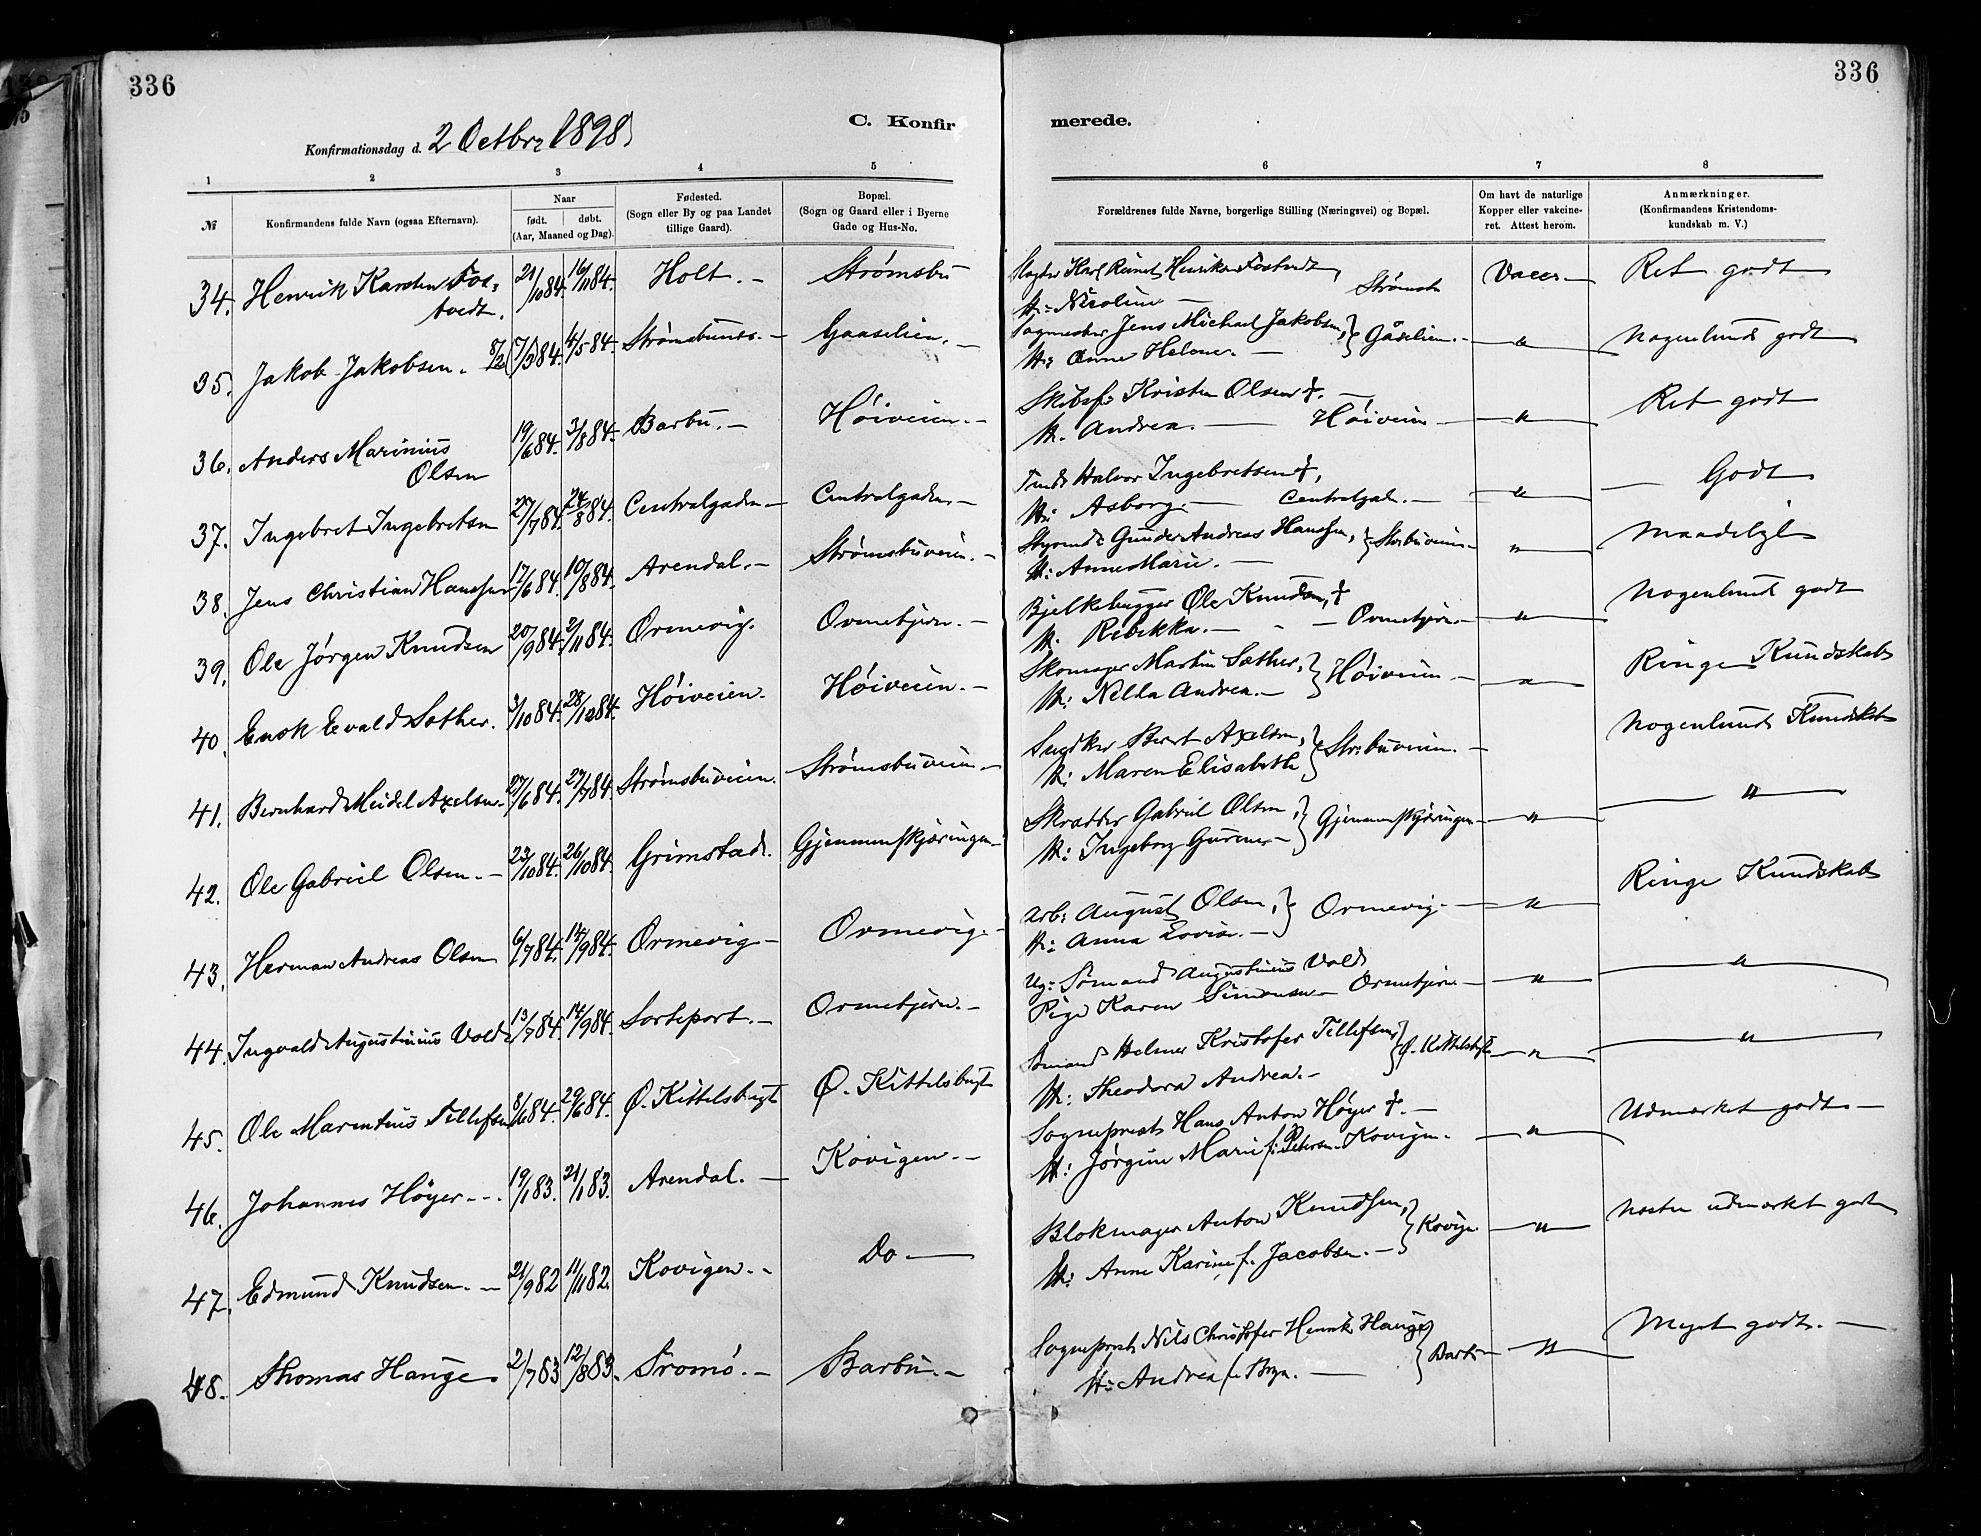 336
336
C. Konfir merede.
Konfirmationsdag d. 2 Octbr 1898
1 2 3 4 5 6 7 8
№ Konfirmandens fulde Navn (ogsaa Efternavn). Naar født. døbt. (Aar, Maaned og Dag). Fødested. (Sogn eller By og paa Landet tillige Gaard). Bopæl. (Sogn og Gaard eller i Byerne Gade og Hus-No. Forældrenes fulde Navne, borgerlige Stilling (Næringsvei) og Bopæl. Om havt de naturlige Kopper eller vakcineret. Attest herom. Anmærkninger. (Konfirmandens Kristendomskundskab m. V.)
34. Henrik Karsten Fos- 21/10 84. 16/11 84. Holt. – Strømsbu Karl Henriksen Fostvedt, Strømsbu Vacc. Ret godt
tvedt. H: Nicoline –
35. Jakob Jakobsen. 7/3 84. 4/5 84. Strømsbunes. – Gaaselien. – Jens Michael Jakobsen, } Gåselien. – " Nogenlunde godt
H: Anne Helene. –
36. Anders Marinius 19/6 84. 3/8 84. Barbu. – Høiveien. – Skibsf: Kristen Olsen †. – Høiveien " Ret godt
Olsen H. Andrea. –
37. Ingebret Ingebretsen 27/7 84. 24/8 84. Centralgaden – Centralgaden. – Halvor Ingebretsen †, " – Godt
H: Asborg. – Centralgad. –
38. Jens Christian Hanssen 17/6 84. 10/8 84. Arendal. – Strømsbuveien. – Styrmd: Gunder Andreas Hanssen, } Strbuveien – " Maadeligt
H: Anne Marie. –
39. Ole Jørgen Knudsen 20/9 84. 2/11 84. Ormevig. Ormetjern. – Bjelkehugger Ole Knudsen, † " Nogenlunde godt
H. Rebekka. – – Ormetjern. –
40. Enok Evald Sæther. 3/10 84. 28/12 84. Høiveien. Høiveien. – Skomager Martin Sæther, } Høiveien – " Ringe Kundskab
H: Nella Andrea. –
41. Bernhard Meidel Axelsen. 27/6 84. 27/7 84. Strømsbuveien. Strømsbuveien – Snedker Berent Axelsen, } Strbuveien. – Nogenlunde Kundskab
H: Maren Elisabeth
42. Ole Gabriel Olsen. – 23/10 84. 26/10 84. Grimstad. Gjennemskjæringen – Skrædder Gabriel Olsen, } Gjennemskjæringen – " – " –
H: Ingeborg Gurine –
43. Herman Andreas Olsen 6/7 84. 14/9 84. Ormevig – Ormevig. – Arb: August Olsen, } Ormevig. – " Ringe Kundskab
H: Anna Lovise. –
44. Ingvald Augustinius Vold 13/7 84. 14/9 84. Sorteport. – Ormetjern. – Ug: Sømand Augustinius Vold " "
Pige Karen Simonsen – Ormetjern –
45. Ole Marentius Tellefsen 8/6 84. 29/6 84. Ø. Kittelsbugt Ø. Kittelsbugt Sømand Helmer Kristofer Tellefsen } Ø. Kittelsbugt – " "
H: Theodora Andrea. –
46. Johannes Høyer – – 19/1 83. 21/1 83. Arendal. – Kovigen. – Sogneprest Hans Anton Høyer †. – " Udmerket godt. –
H: Jørgine Marie f: Petersen. Kovigen. –
47. Edmund Knudsen. – 21/9 82 11/11 82. Kovigen. – Do – Blokmager Anton Knudsen, } Kovign " Næsten udmerket godt
H: Anne Karine f. Jacobsen. –
48. Thomas Hauge 2/7 83 12/8 83. Tromø. – Barbu. – Sogneprest Nils Christofer Henrik Hauge } Barbu – " Meget godt. –
H: Andrea f: